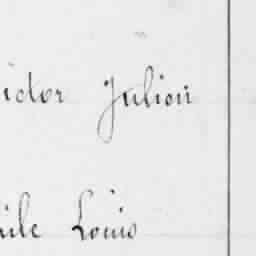 ictor Julien
ile Louis